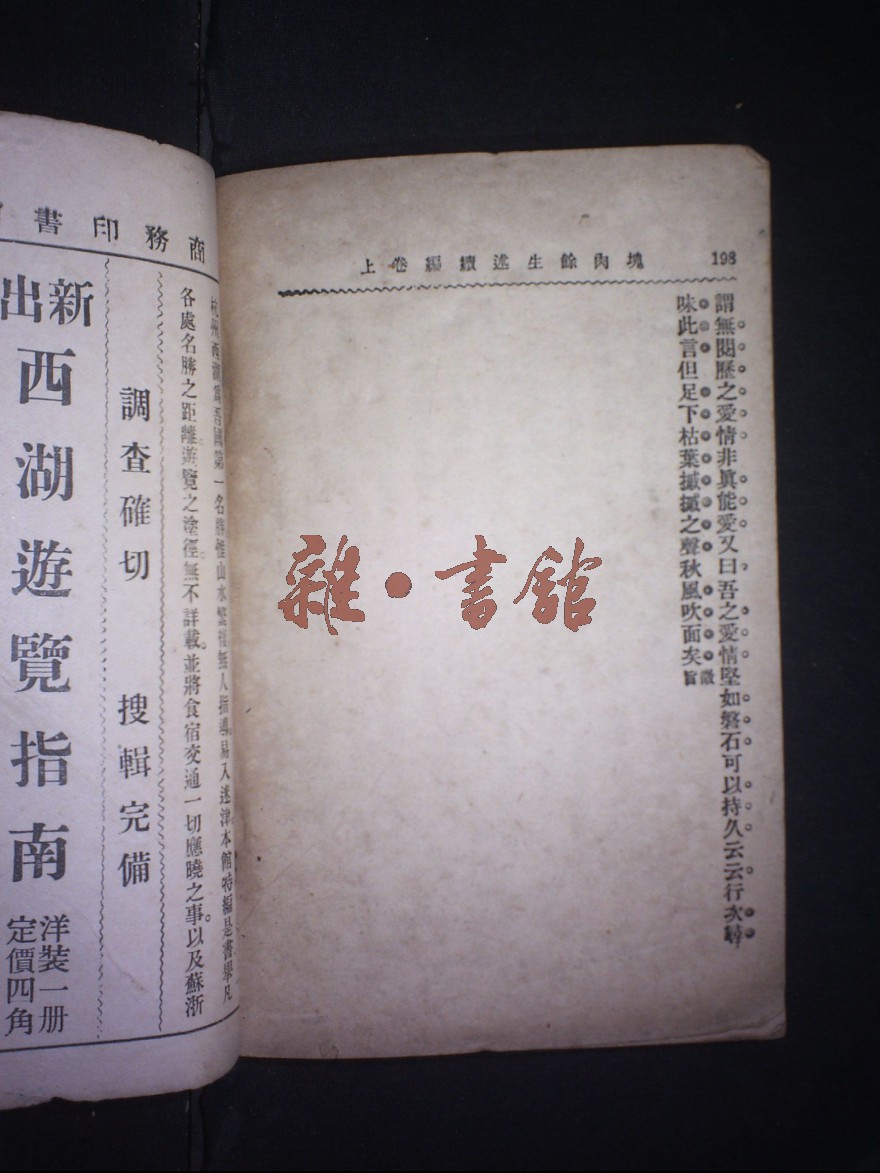 198 塊肉餘生述續編卷上
謂無閱歷之愛情非眞能愛又曰吾之愛情堅如磐石可以持久云云行次尋
味此言但足下枯葉摵摵之聲秋風吹面矣微旨
雜•書館
商務印書
杭州西湖爲吾國第一名勝惟山水繁複無人指導。易入迷津本館特編是書舉凡
各處名勝之距離。遊覽之塗徑。無不詳載。並將食宿交通一切應曉之事。以及蘇浙
調查確切 搜輯完備
新出
西湖遊覽指南
洋裝一册
定價四角